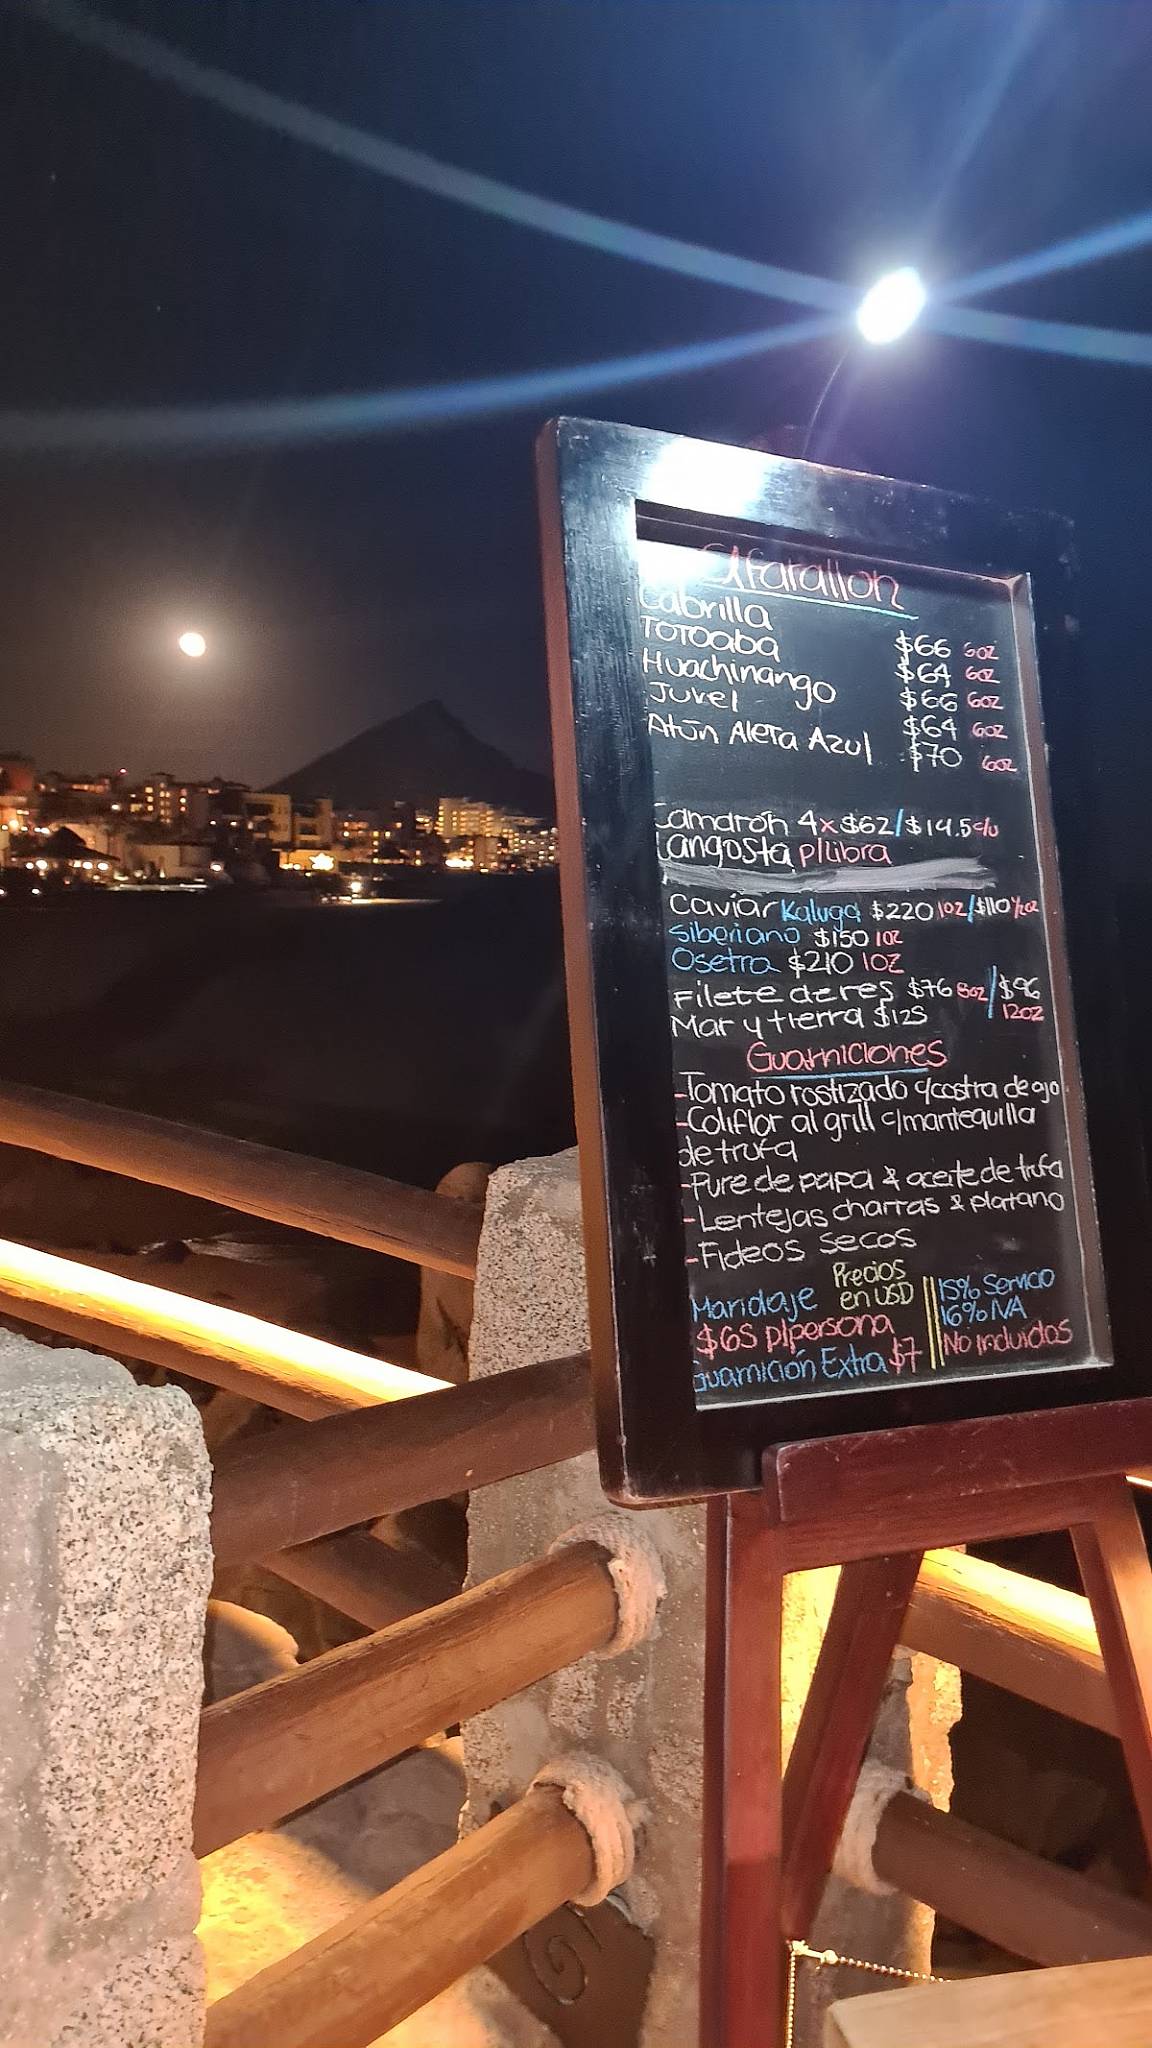 El farallon
Cabrilla $66 6oz
Totoaba $64 6oz
Huachinango $66 6oz
Jurel $64 6oz
Atún Aleta Azul $70 6oz
Camarón 4x$62/$14.5c/u
Langosta p/Libra
Caviar Kaluga $220 1oz/$110 1/2oz
Siberiano $150 1oz
Osetra $210 1oz
Filete de res $76 8oz/$96 12oz
Mar y tierra $125
Guarniciones
-Tomato rostizado c/costra de ajo
-Coliflor al grill c/mantequilla
de trufa
-Pure de papa & aceite de trufa
-Lentejas charras & platano
-Fideos secos
Maridaje
$65 p/persona
Guarnición Extra $7
Precios
en USD
15% Servicio
16% IVA
No incluidos